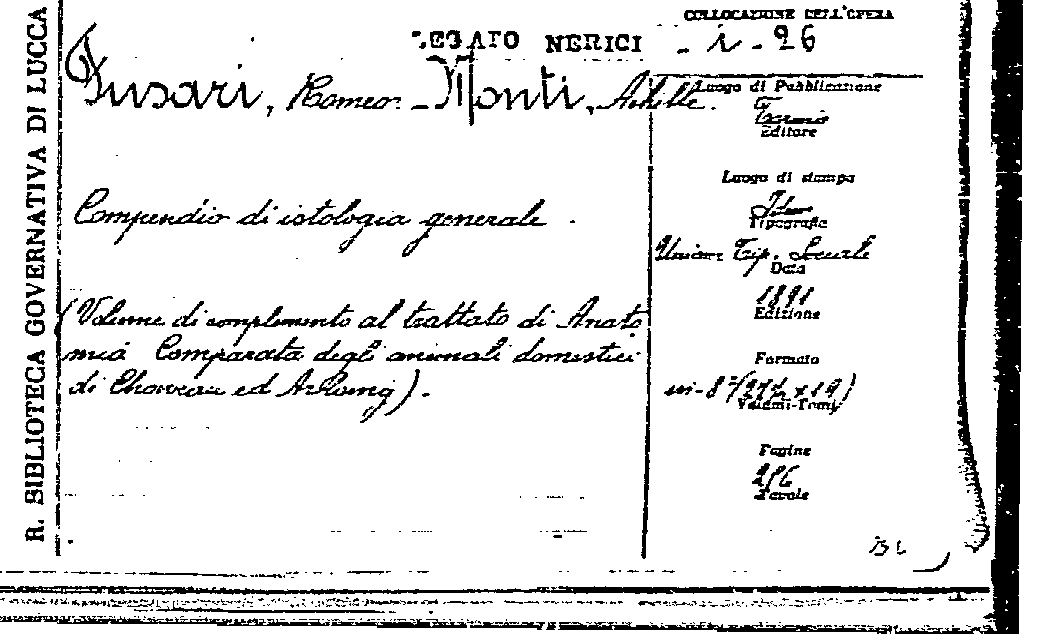 R. BIBLIOTECA GOVERNATIVA DI LUCCA
COLLOCAZIONE DELL'OPERA
LEGATO NERICI - i - 26
Fusari, Romeo. - Monti, Achille.
Luogo di Pubblicazione
Torino
Editore
Luogo di stampa
Idem
Tipografia
Unione Tip. Sociale
Data
1891
Edizione
Formato
in-8°
Volumi-Tomi
Pagine
Tavole
Compendio di istologia generale.
(Volume di complemento al trattato di Anato
mia Comparata degli animali domestici
di Chaveau ed Arloing).